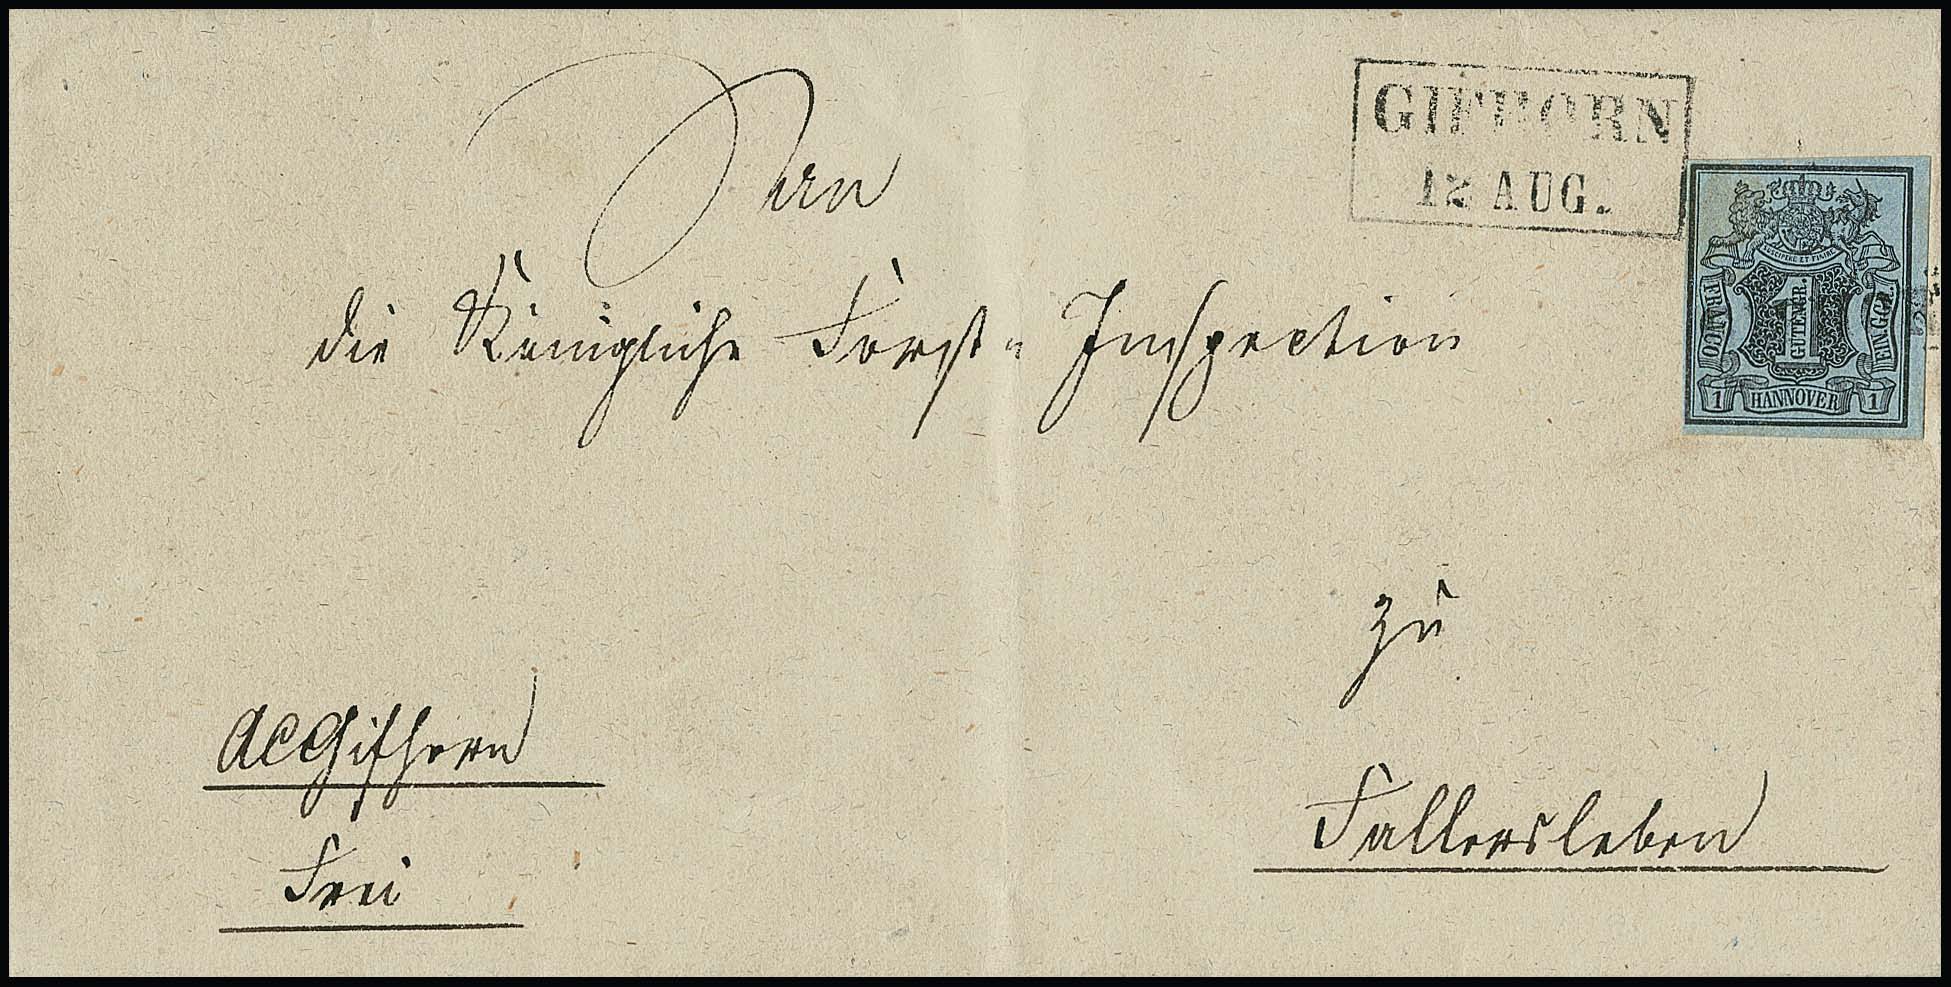 GIFHORN
12 AUG.
An
die Königliche Forst-Inspection
SUSCIPERE ET FINIRE
FRANCO
1 GUTENGR.
EING.GR.
1 HANNOVER 1
zu
Fallersleben
Gifhorn
Frei